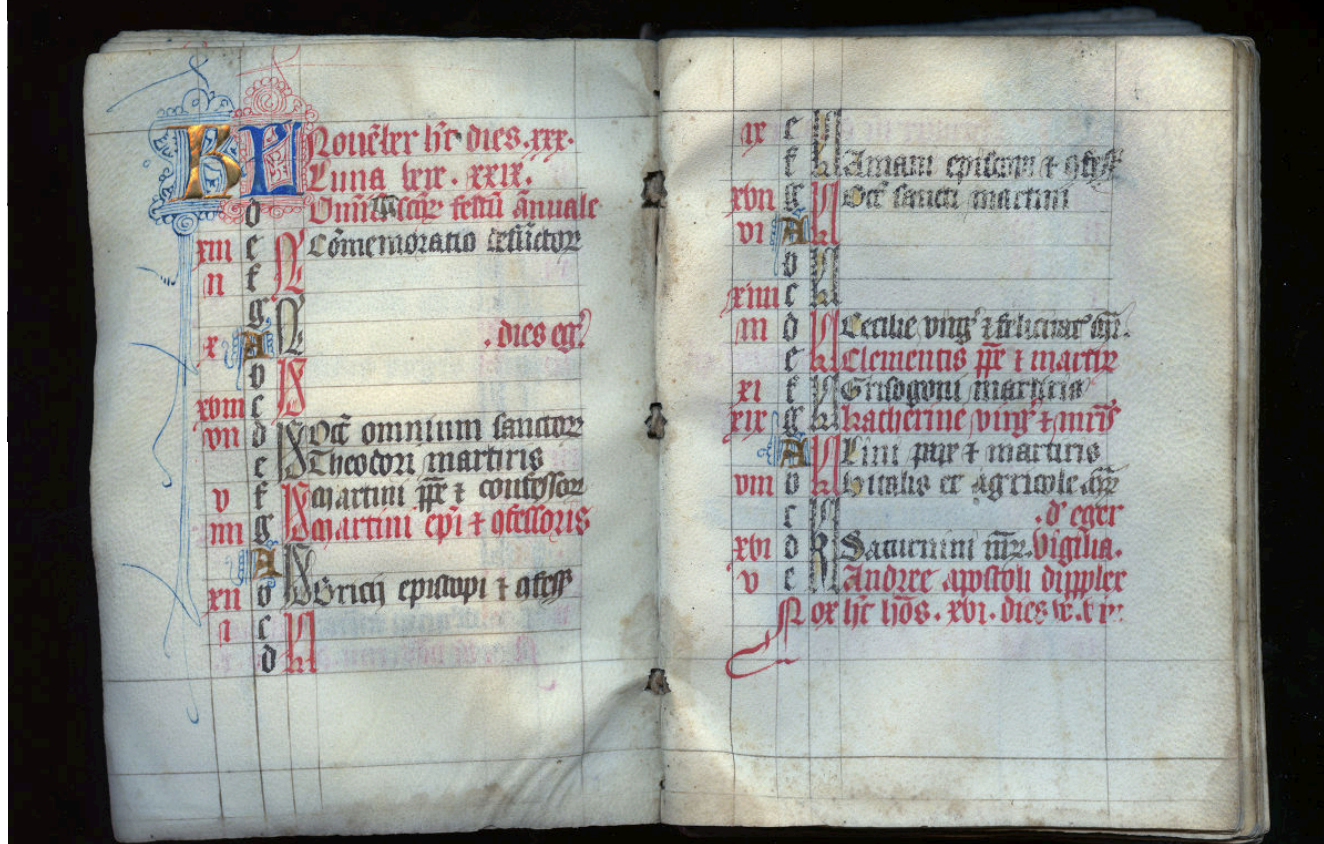 KL Nouēber hēt dies. xxx.
Luna vero. xxix.
d Omniū scōꝝ festū ānuale
xiii e N Cōmemoratio defūctoꝝ
ii f
g N
x A . dies egꝰ
b N
xviii c
vii d N Octā omnium sanctoꝝ
e Theodori martiris
v f N Martini pp̄e ⁊ confessoꝝ
iiii g Martini ep̄i ⁊ ↄfessoris
A N
xii b Bricij episcopi ⁊ ↄfess
i c kl
d
ix e kl
f Aniani episcopi ⁊ ↄfess
xvii g kl Octā sancti martini
vi A
b kl
xiiii c
iii d kl Cecilie virgꝰ ⁊
e Clementis pp̄e ⁊ martir
xi f kl Grisogoni martiris
xix g katherine virgꝰ ⁊ mr̄is
A kl Lini pape ⁊ martiris
viii b Vitalis et agricole mr̄
c kl . d' eger
xvi d Saturnini mr̄. vigilia.
v e kl Andree apostoli dupplex
Nox hēt hōs. xvi. dies